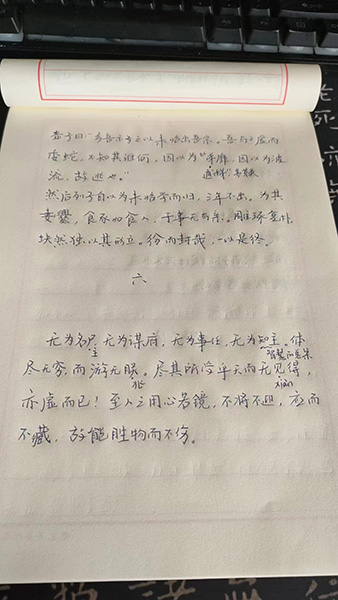 壶子曰："乡吾示之以未始出吾宗。吾与之虚而
委蛇，不知其谁何，因以为"弟靡，因以为波
流，故逃也。"
然后列子自以为未始学而归，三年不出。为其
妻爨，食豕如食人，于事无与亲。雕琢复朴，
块然独以其形立。纷而封哉，一以是终。
六
无为名尸，无为谋府，无为事任，无为知主。体
主
智慧的
尽无穷，而游无朕。尽其所受乎天而无见得，
亦虚而已！至人之用心若镜，不将不迎，应而
不藏，故能胜物而不伤。